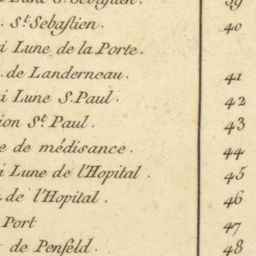 . St Sebastien. 40
i Lune de la Porte.
. de Landerneau. 41
i Lune S. Paul. 42
ion St Paul. 43
e de médisance. 44
i Lune de l'Hopital. 45
. de l'Hopital. 46
Port 47
de Penfeld. 48